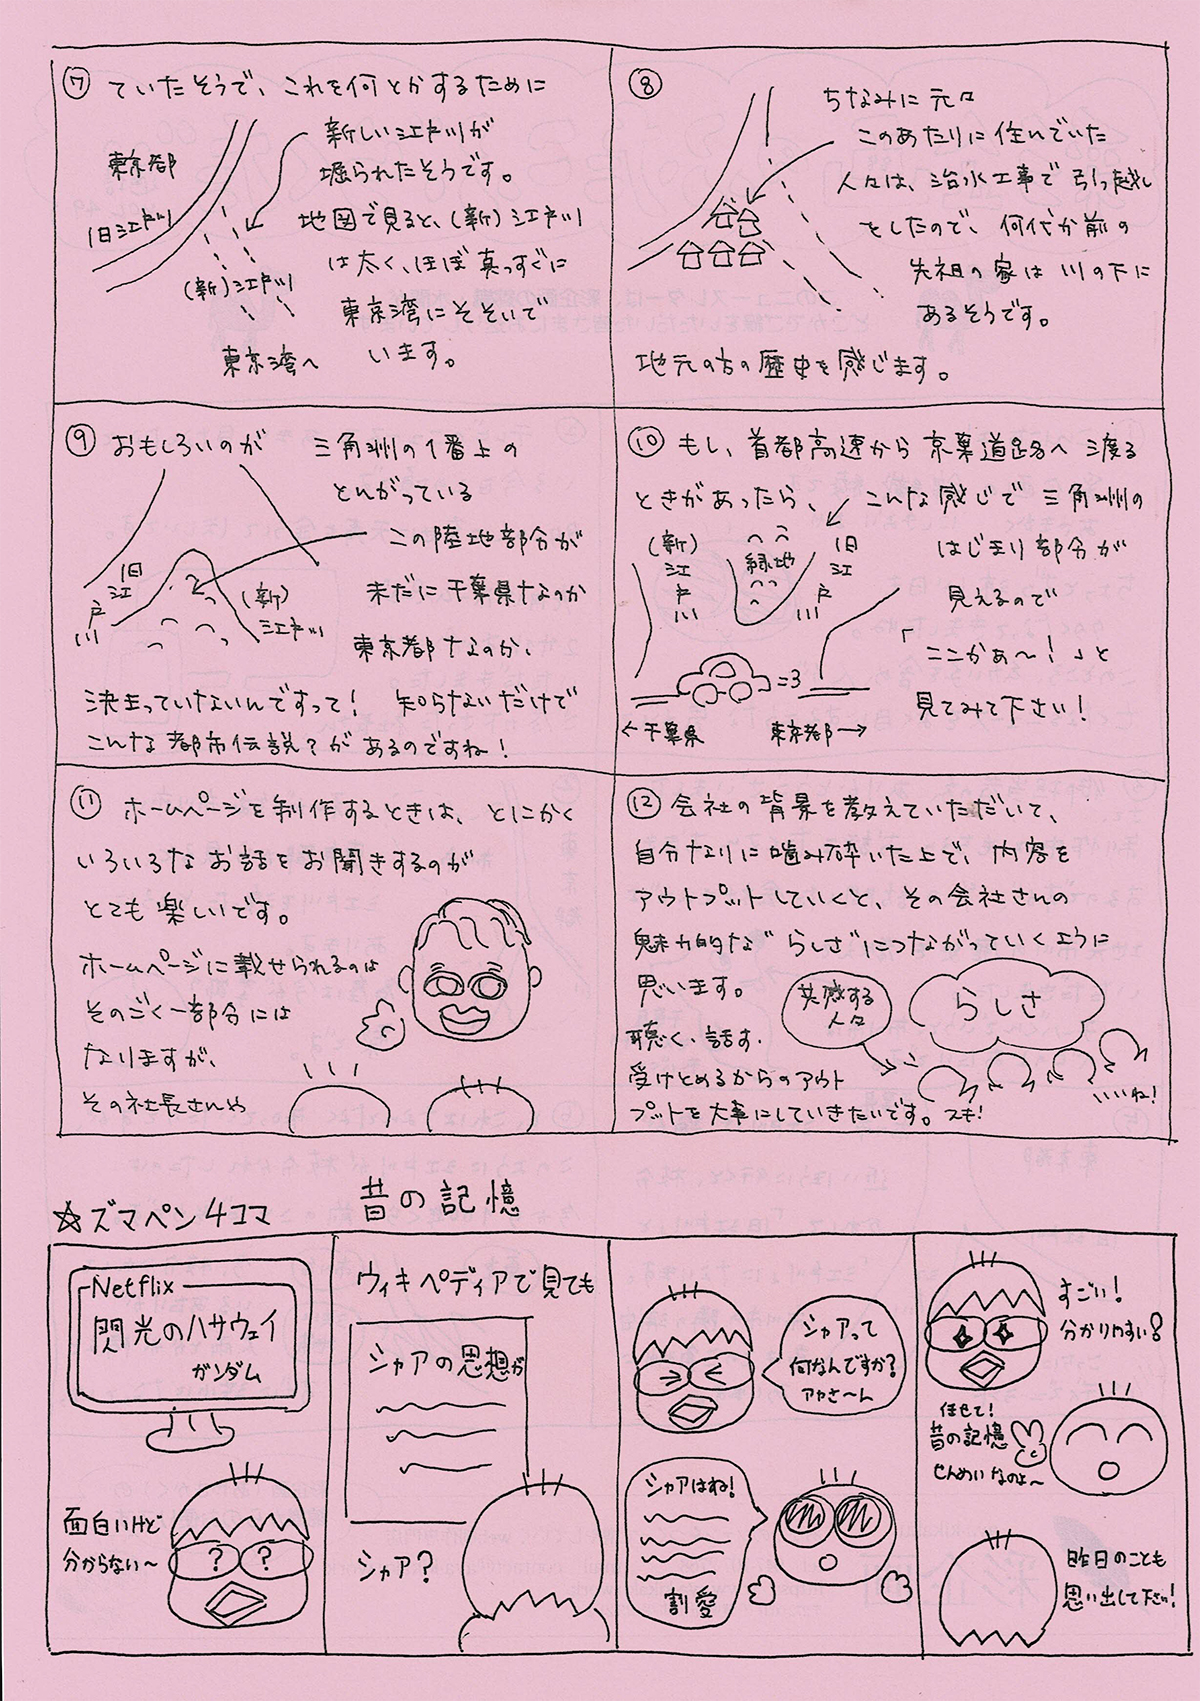 ⑦ ていたそうで、これを何とかするために
新しい江戸川が
掘られたそうです。
地図で見ると、(新)江戸川
は太く、ほぼ真っすぐに
東京湾にそそいで
います。
東京都
旧江戸川
(新)江戸川
東京湾へ
⑧ ちなみに元々
このあたりに住んでいた
人々は、治水工事で引っ越し
をしたので、何代か前の
先祖の家は川の下に
あるそうです。
地元の方の歴史を感じます。
⑨ おもしろいのが 三角州の1番上の
とんがっている
この陸地部分が
未だに千葉県なのか
東京都なのか、
決まっていないんですって! 知らないだけで
こんな都市伝説?があるのですね!
旧江戸川
(新)江戸川
⑩ もし、首都高速から京葉道路へ渡る
ときがあったら、こんな感じで三角州の
はじまり部分が
見えるので
「ここかぁ〜!」と
見てみて下さい!
(新)江戸川
緑地
旧江戸川
=3
←千葉県
東京都→
⑪ ホームページを制作するときは、とにかく
いろいろなお話をお聞きするのが
とても楽しいです。
ホームページに載せられるのは
そのごく一部分には
なりますが、
その社長さんや
⑫ 会社の背景を教えていただいて、
自分なりに噛み砕いた上で、内容を
アウトプットしていくと、その会社さんの
魅力的な"らしさ"につながっていくように
思います。
聴く、話す、
受けとめるからのアウト
プットを大事にしていきたいです。
共感する
人々
らしさ
スキ!
いいね!
☆ズマペン4コマ 昔の記憶
Netflix
閃光のハサウェイ
ガンダム
面白いけど
分からない〜
? ?
ウィキペディアで見ても
シャアの思想が
シャア?
シャアって
何なんですか?
アヤさ〜ん
シャアはね!
割愛
すごい!
分かりやすい!
任せて!
昔の記憶
せんめいなのよ〜
昨日のことも
思い出して下さい!